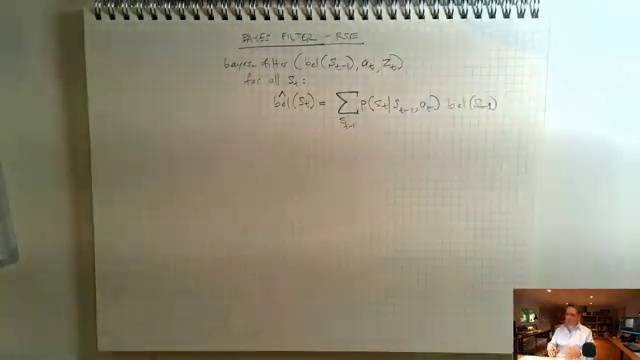 BAYES FILTER - RSE
bayes-filter (bel(S_{t-1}), a_t, z_t)
for all S_t:
b̂el(S_t) = ∑_{S_{t-1}} P(S_t | S_{t-1}, a_t) bel(S_{t-1})